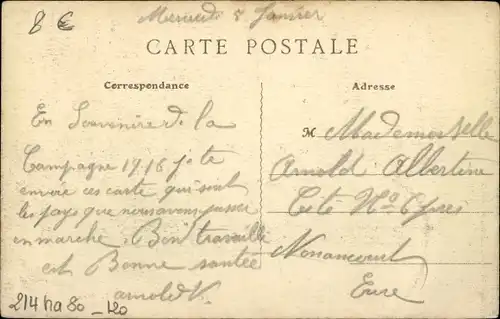 8 €
Mercredi 5 Janvier
CARTE POSTALE
Correspondance
Adresse
En Souvenire de la
Campagne 1916 je te
envoie ces carte qui sont
les pays que nous avons passer
en marche. Bon travaille
et Bonne santée
arnold V.
M Mademoiselle
Arnold Albertine
Cité Nº
Nonancourt
Eure
214 ha 80 - 120